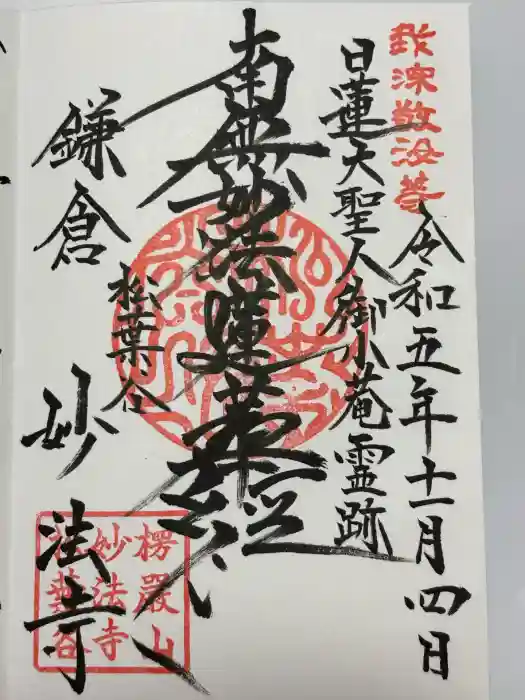 我深敬汝等
令和五年十一月四日
日蓮大聖人御小菴霊跡
南無妙法蓮華経
松葉谷
鎌倉
妙法寺
楞厳山
妙法寺
松葉谷